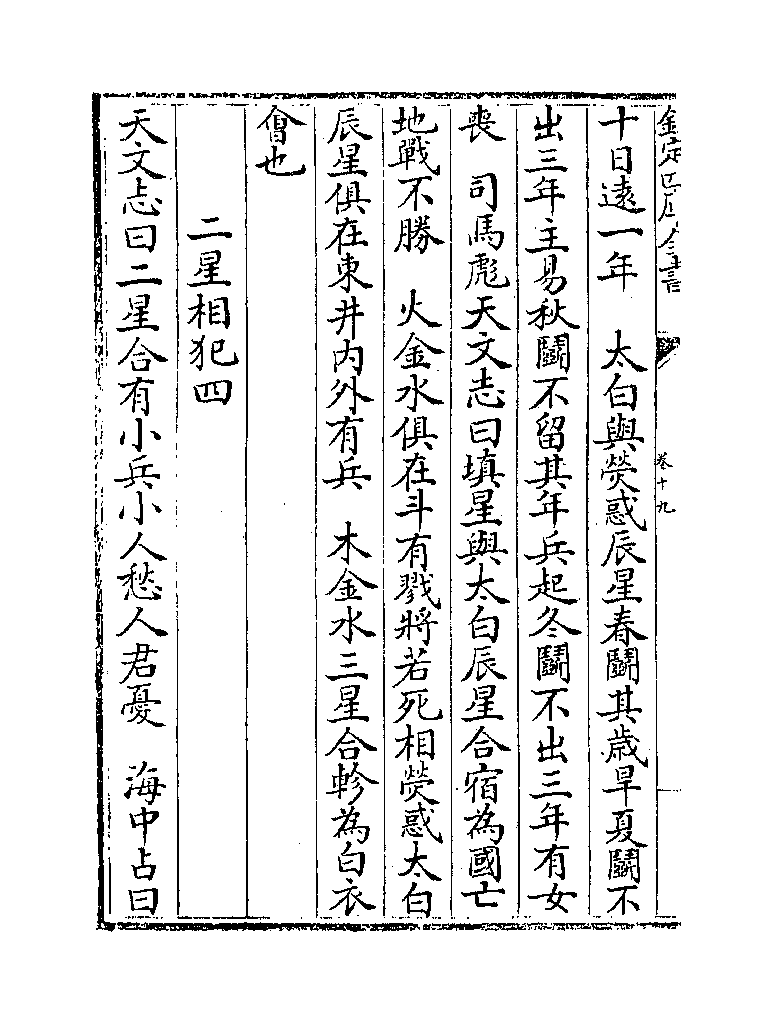 欽定四庫全書
卷十九
十日遠一年　太白與熒惑辰星春鬭其歲旱夏鬭不
出三年主易秋鬭不留其年兵起冬鬭不出三年有女
喪　司馬彪天文志曰填星與太白辰星合宿為國亡
地戰不勝　火金水俱在斗有戮將若死相熒惑太白
辰星俱在東井內外有兵　木金水三星合軫為白衣
會也
二星相犯四
天文志曰二星合有小兵小人愁人君憂　海中占曰